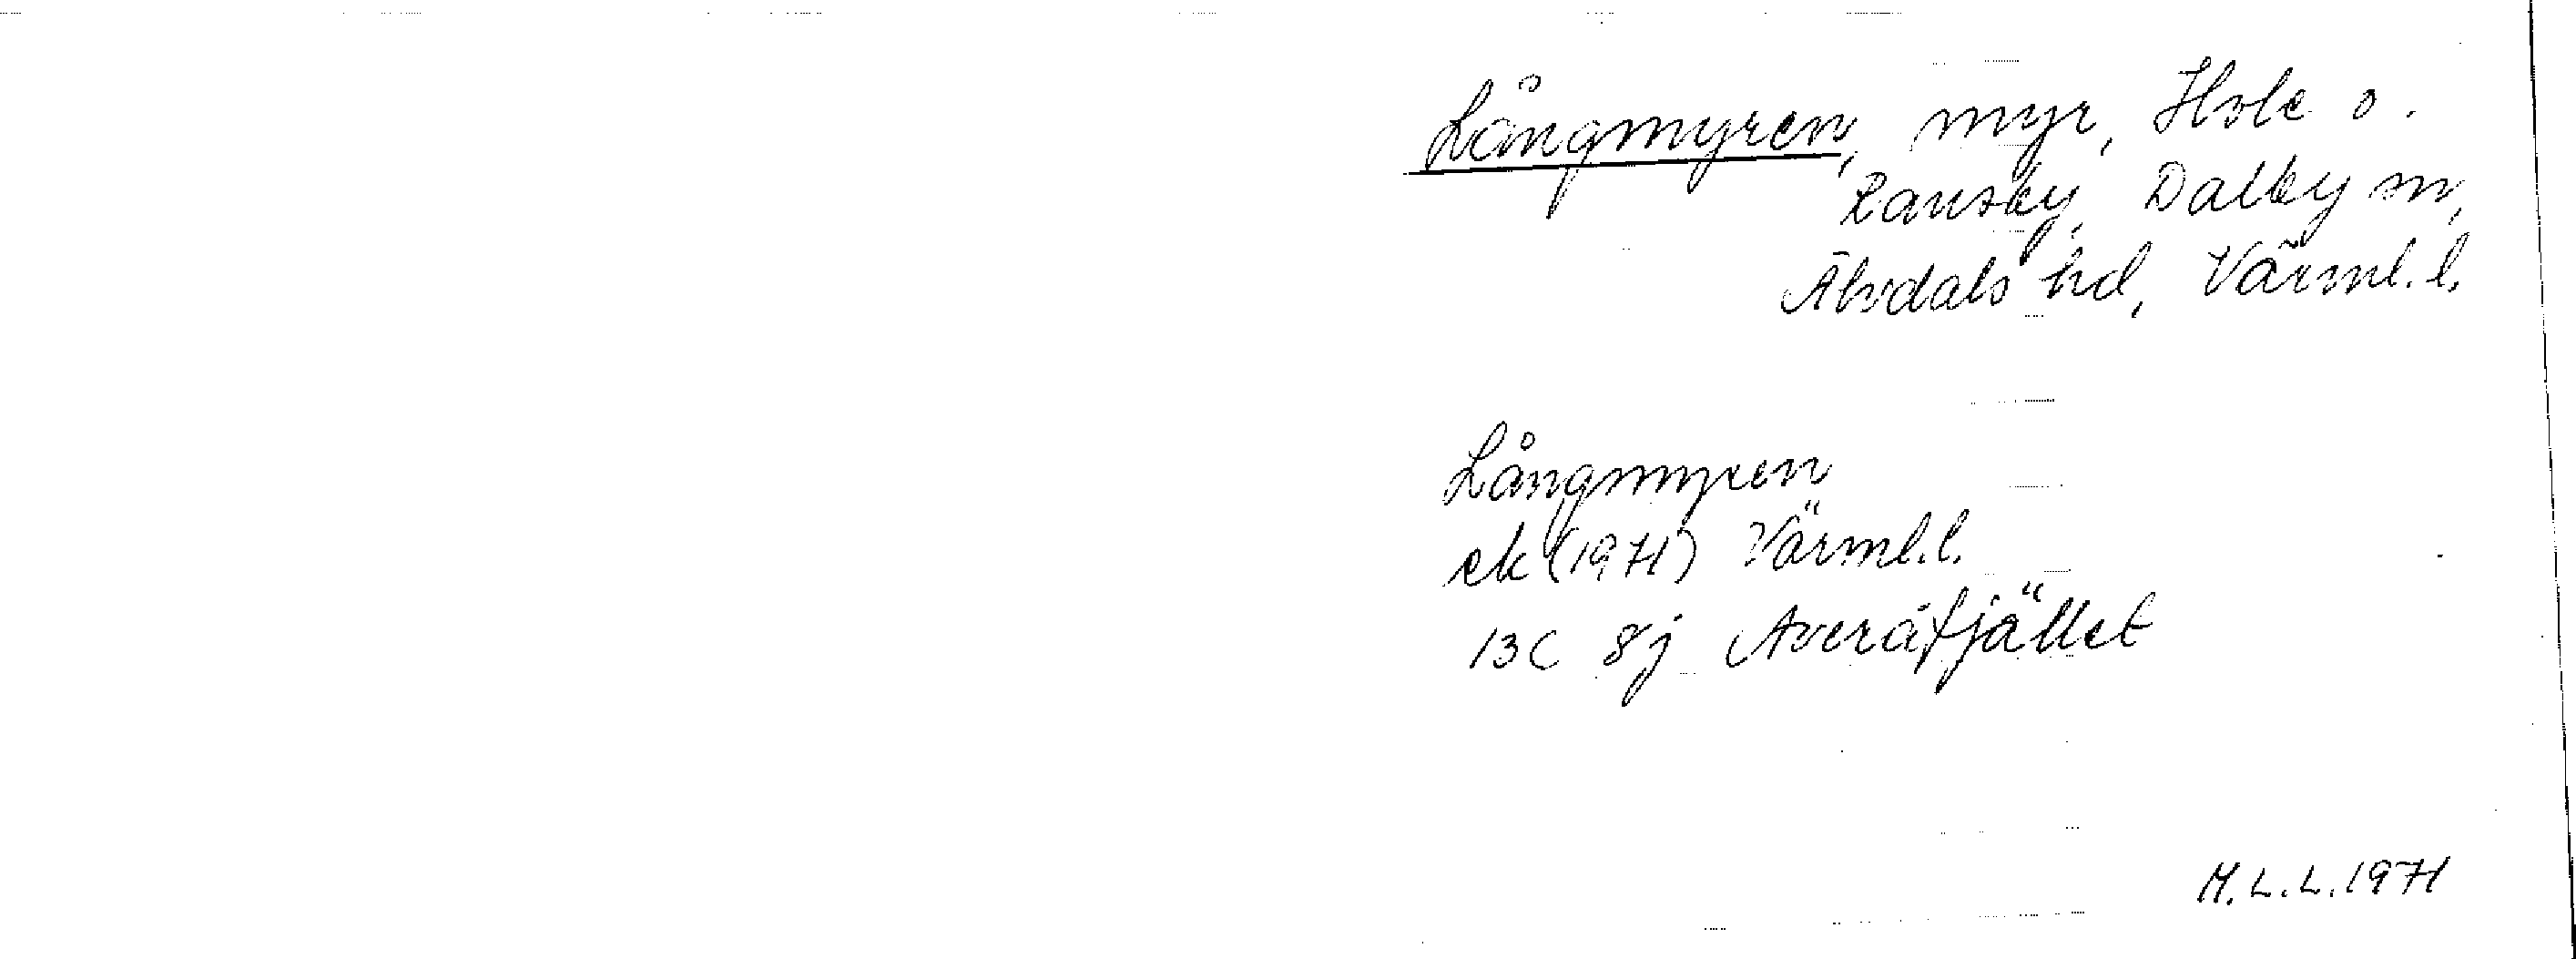 Långmyren, myr, Hole o.
Ransby, Dalby sn,
Älvdals hd, Värml. l.
Långmyren
ek (1971) Värml. l.
13C 8j Averåfjället
M. L. L. 1971